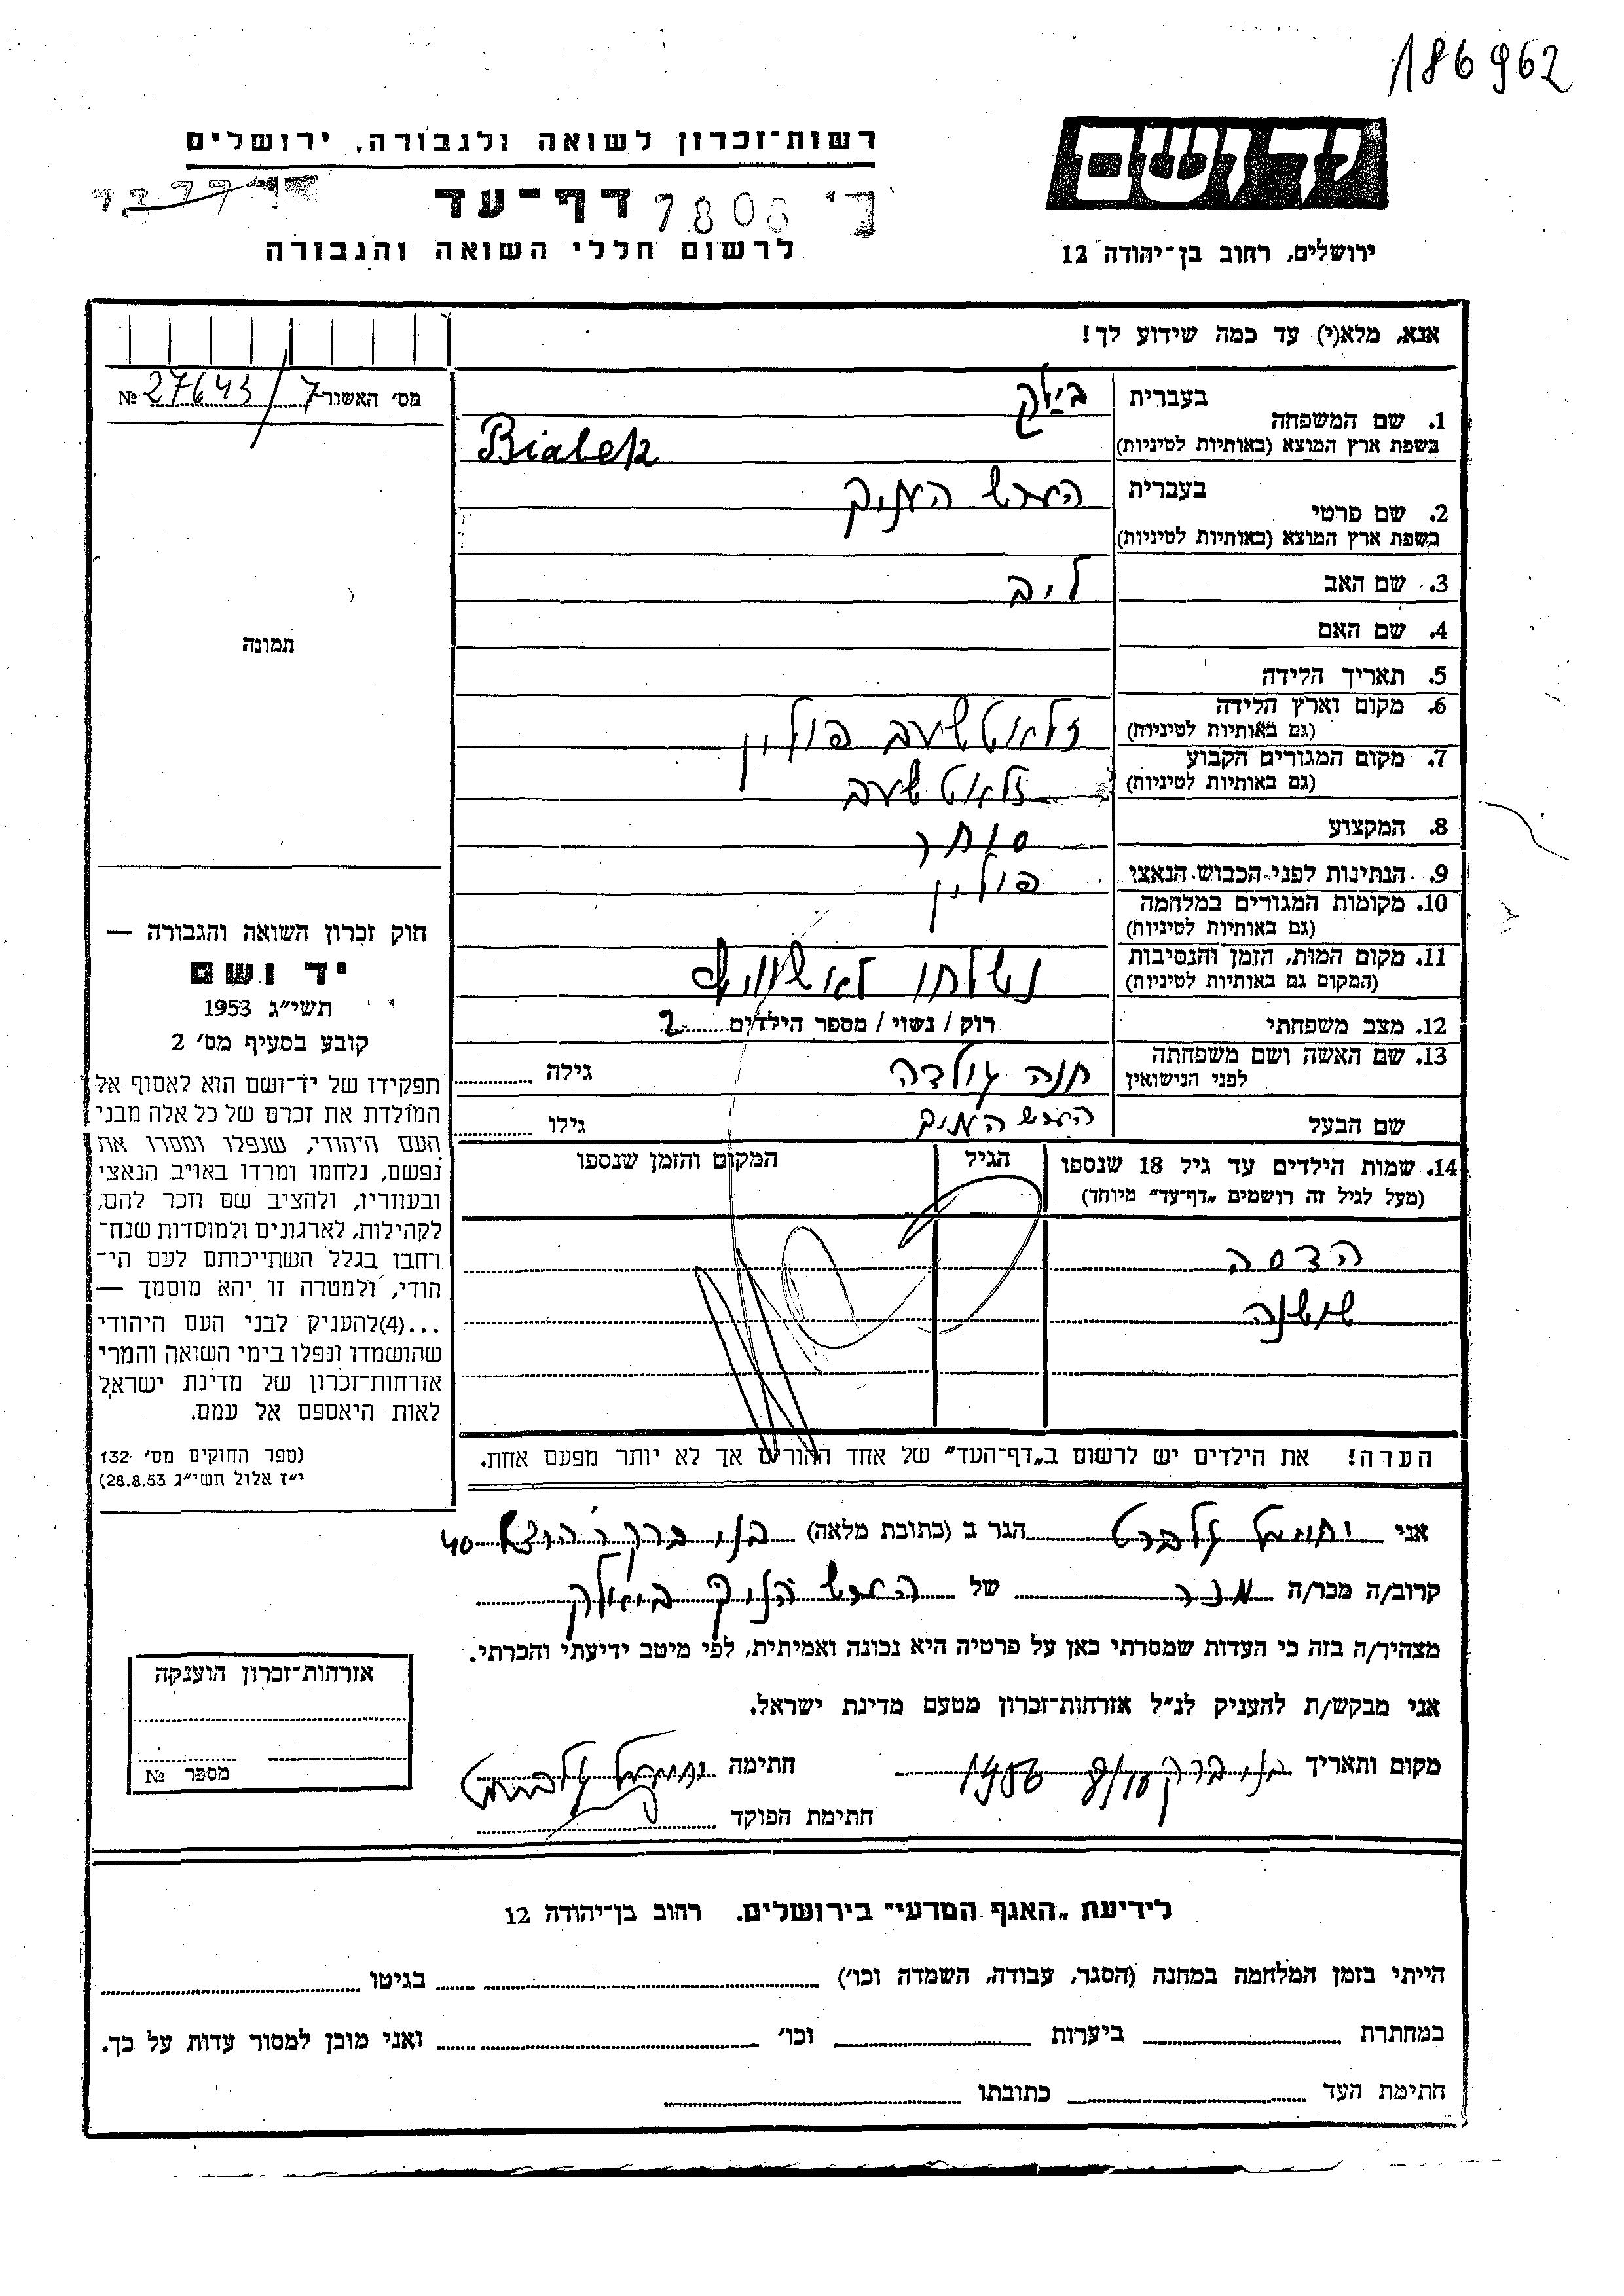 186962
יד ושם
ירושלים, רחוב בן־יהודה 12
רשות־זכרון לשואה ולגבורה, ירושלים
דף־עד
7808
לרשום חללי השואה והגבורה
אנא, מלא(י) עד כמה שידוע לך!
מס׳ האשור 7/27643 №
תמונה
1. שם המשפחה
בעברית
בשפת ארץ המוצא (באותיות לטיניות) Bialek
2. שם פרטי
בעברית הערש העניך
בשפת ארץ המוצא (באותיות לטיניות)
3. שם האב ליב
4. שם האם
5. תאריך הלידה
6. מקום וארץ הלידה
(גם באותיות לטיניות) זלאטשעב פולין
7. מקום המגורים הקבוע
(גם באותיות לטיניות) זלאטשעב
8. המקצוע סוחר
9. הנתינות לפני הכבוש הנאצי פולין
10. מקומות המגורים במלחמה
(גם באותיות לטיניות)
11. מקום המות, הזמן והנסיבות
(המקום גם באותיות לטיניות) נשלחו
12. מצב משפחתי רוק / נשוי / מספר הילדים 2
13. שם האשה ושם משפחתה
לפני הנישואין חנה גולדה גילה
שם הבעל הערש העניך גילו
14. שמות הילדים עד גיל 18 שנספו
(מעל לגיל זה רושמים „דף־עד” מיוחד)
הגיל
המקום והזמן שנספו
הדסה
שושנה
הערה! את הילדים יש לרשום ב„דף־העד” של אחד ההורים אך לא יותר מפעם אחת.
חוק זכרון השואה והגבורה —
יד ושם
תשי״ג 1953
קובע בסעיף מס׳ 2
תפקידו של יד־ושם הוא לאסוף אל
המולדת את זכרם של כל אלה מבני
העם היהודי, שנפלו ומסרו את
נפשם, נלחמו ומרדו באויב הנאצי
ובעוזריו, ולהציב שם וזכר להם,
לקהילות, לארגונים ולמוסדות שנח־
רחבו בגלל השתייכותם לעם הי־
הודי, ולמטרה זו יהא מוסמך —
...(4)להעניק לבני העם היהודי
שהושמדו ונפלו בימי השואה והמרי
אזרחות־זכרון של מדינת ישראל
לאות היאספם אל עמם.
(ספר החוקים מס׳ 132
י״ז אלול תשי״ג 28.8.53)
אני הגר ב (כתובת מלאה) בני ברק 40
קרוב/ה מכר/ה מכר של הערש הניך ביאלק
מצהיר/ה בזה כי העדות שמסרתי כאן על פרטיה היא נכונה ואמיתית, לפי מיטב ידיעתי והכרתי.
אני מבקש/ת להעניק לנ״ל אזרחות־זכרון מטעם מדינת ישראל.
מקום ותאריך בני ברק 1956 חתימה
חתימת הפוקד
אזרחות־זכרון הוענקה
מספר №
לידיעת „האגף המדעי” בירושלים. רחוב בן־יהודה 12
הייתי בזמן המלחמה במחנה (הסגר, עבודה, השמדה וכו׳) בגיטו
במחתרת ביערות וכו׳ ואני מוכן למסור עדות על כך.
חתימת העד כתובתו